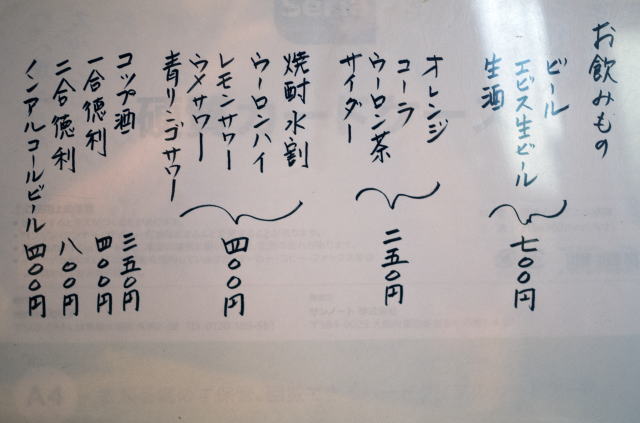 お飲みもの
ビール
エビス生ビール
生酒
七〇〇円
オレンジ
コーラ
ウーロン茶
サイダー
二五〇円
焼酎水割
ウーロンハイ
レモンサワー
ウメサワー
青リンゴサワー
四〇〇円
コップ酒 三五〇円
一合徳利 四〇〇円
二合徳利 八〇〇円
ノンアルコールビール 四〇〇円
A4